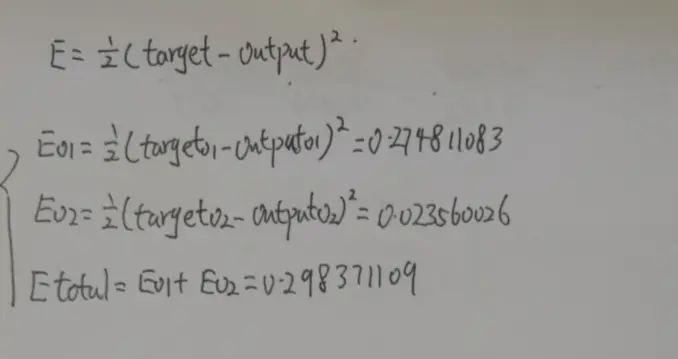 E=½(target-output)².
Eo1=½(targeto1-outputo1)²=0.274811083
Eo2=½(targeto2-outputo2)²=0.023560026
Etotal=Eo1+Eo2=0.298371109